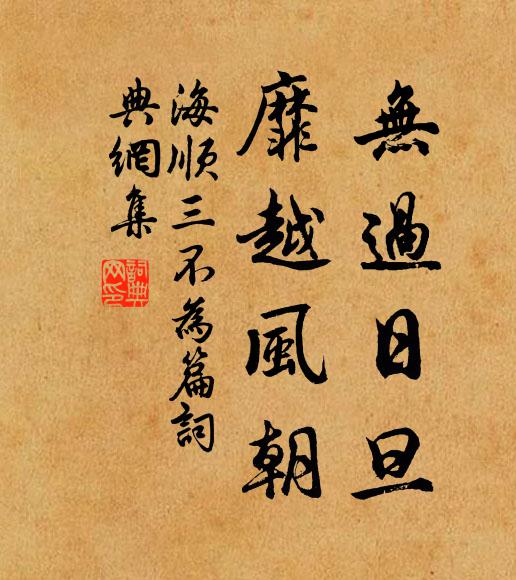 無過日旦
靡越風朝
海順三不為篇詞
典網集
詞典
网印